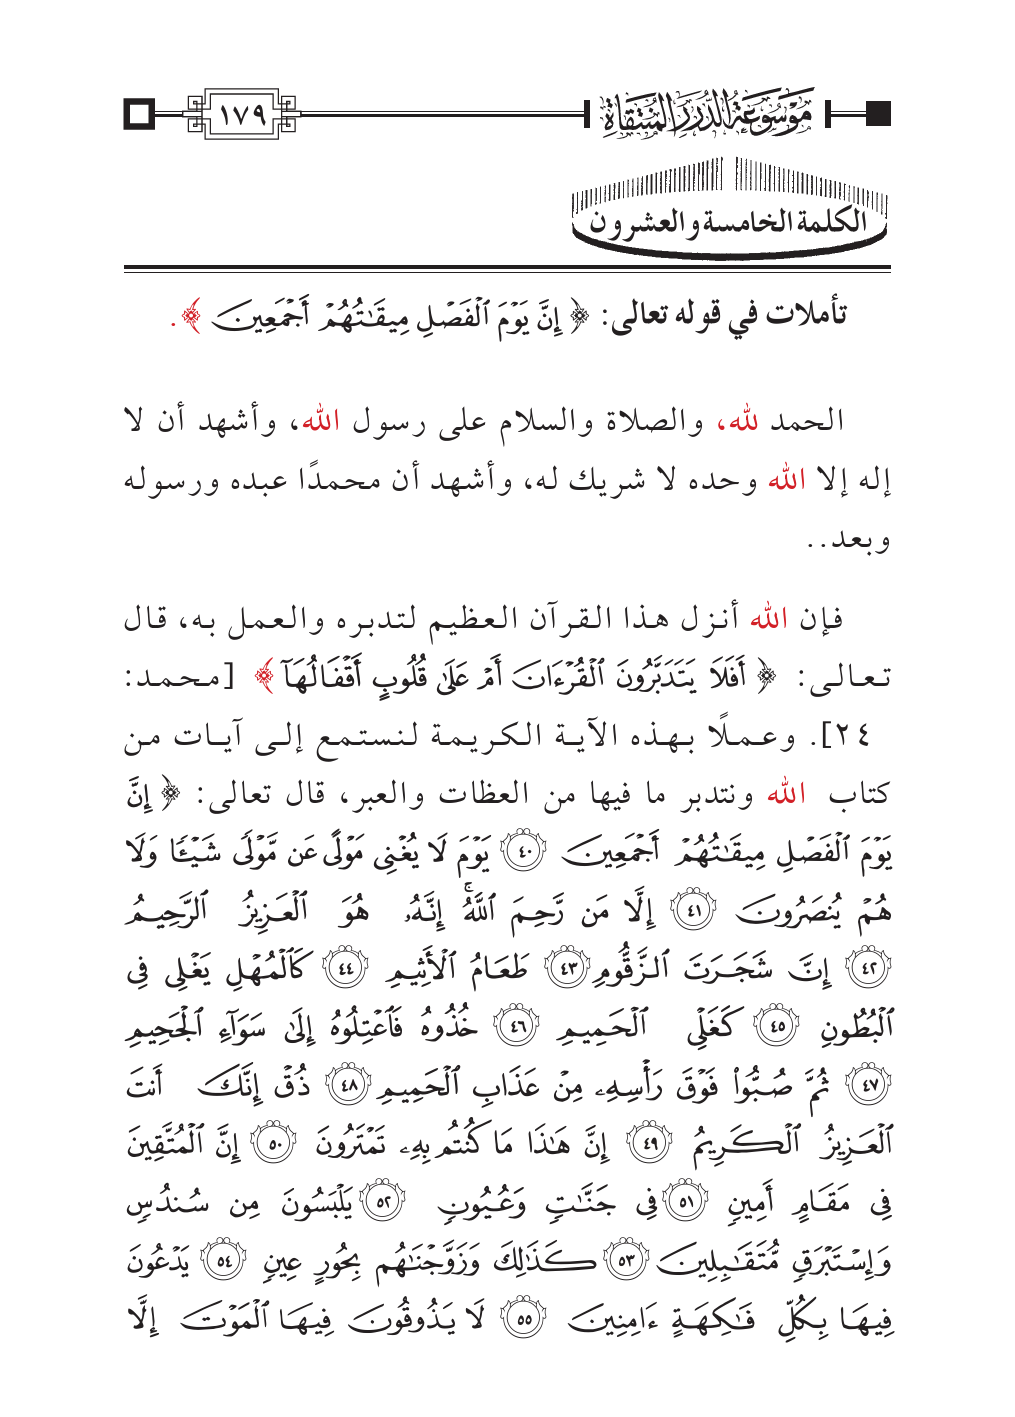 مَوْسُوعَةُ الدُّرَرِ المُنْتَقَاةِ
١٧٩
الكلمة الخامسة والعشرون
تأملات في قوله تعالى: ﴿ إِنَّ يَوْمَ ٱلْفَصْلِ مِيقَٰتُهُمْ أَجْمَعِينَ ﴾.
الحمد لله، والصلاة والسلام على رسول الله، وأشهد أن لا
إله إلا الله وحده لا شريك له، وأشهد أن محمدًا عبده ورسوله
وبعد..
فإن الله أنزل هذا القرآن العظيم لتدبره والعمل به، قال
تعالى: ﴿ أَفَلَا يَتَدَبَّرُونَ ٱلْقُرْءَانَ أَمْ عَلَىٰ قُلُوبٍ أَقْفَالُهَآ ﴾ [محمد:
٢٤]. وعملًا بهذه الآية الكريمة لنستمع إلى آيات من
كتاب الله ونتدبر ما فيها من العظات والعبر، قال تعالى: ﴿ إِنَّ
يَوْمَ ٱلْفَصْلِ مِيقَٰتُهُمْ أَجْمَعِينَ ٤٠ يَوْمَ لَا يُغْنِى مَوْلًى عَن مَّوْلًى شَيْـًٔا وَلَا
هُمْ يُنصَرُونَ ٤١ إِلَّا مَن رَّحِمَ ٱللَّهُ ۚ إِنَّهُۥ هُوَ ٱلْعَزِيزُ ٱلرَّحِيمُ
٤٢ إِنَّ شَجَرَتَ ٱلزَّقُّومِ ٤٣ طَعَامُ ٱلْأَثِيمِ ٤٤ كَٱلْمُهْلِ يَغْلِى فِى
ٱلْبُطُونِ ٤٥ كَغَلْىِ ٱلْحَمِيمِ ٤٦ خُذُوهُ فَٱعْتِلُوهُ إِلَىٰ سَوَآءِ ٱلْجَحِيمِ
٤٧ ثُمَّ صُبُّوا۟ فَوْقَ رَأْسِهِۦ مِنْ عَذَابِ ٱلْحَمِيمِ ٤٨ ذُقْ إِنَّكَ أَنتَ
ٱلْعَزِيزُ ٱلْكَرِيمُ ٤٩ إِنَّ هَٰذَا مَا كُنتُم بِهِۦ تَمْتَرُونَ ٥٠ إِنَّ ٱلْمُتَّقِينَ
فِى مَقَامٍ أَمِينٍ ٥١ فِى جَنَّٰتٍ وَعُيُونٍ ٥٢ يَلْبَسُونَ مِن سُندُسٍ
وَإِسْتَبْرَقٍ مُّتَقَٰبِلِينَ ٥٣ كَذَٰلِكَ وَزَوَّجْنَٰهُم بِحُورٍ عِينٍ ٥٤ يَدْعُونَ
فِيهَا بِكُلِّ فَٰكِهَةٍ ءَامِنِينَ ٥٥ لَا يَذُوقُونَ فِيهَا ٱلْمَوْتَ إِلَّا